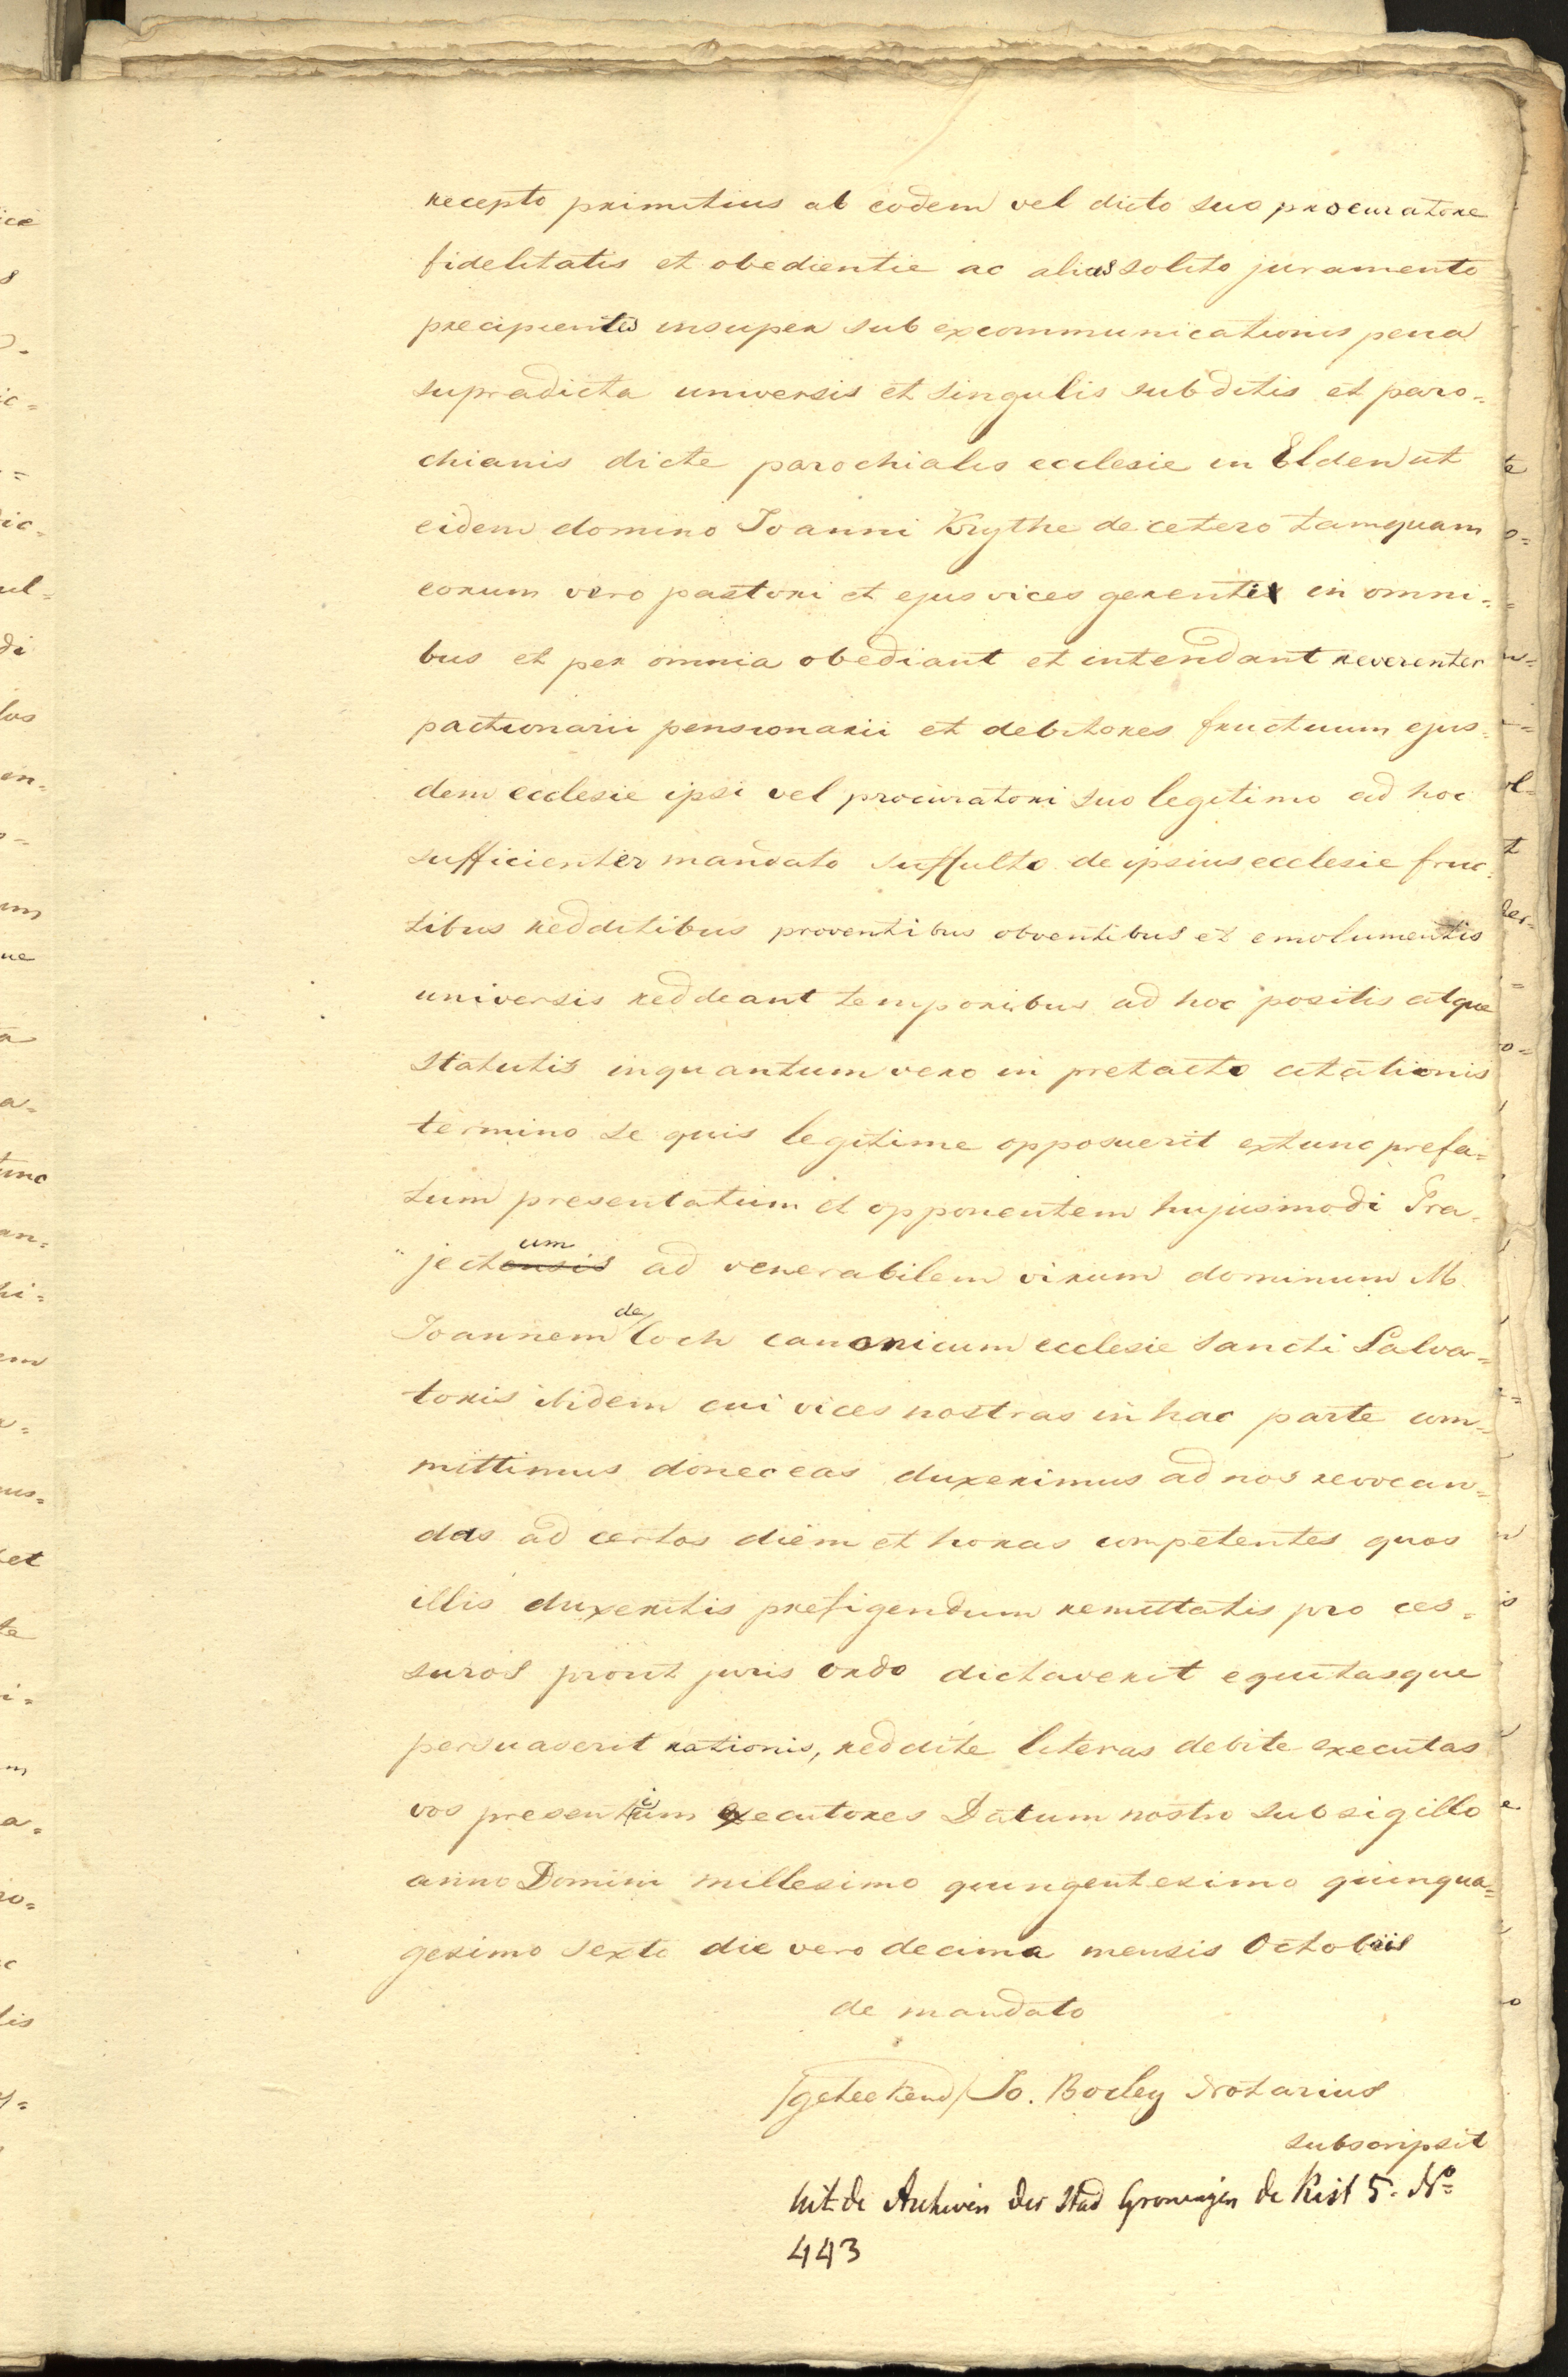 recepto primitius ab eodem vel dicto suo procuratore
fidelitatis et obedientie ac alias solito juramento
precipientes insuper sub excommunicationis pena
supradicta universis et singulis subditis et paro=
chianis dicte parochialis ecclesie in Elden ut
eidem domino Joanni Krythe de cetero tamquam
eorum vero pastori et ejus vices gerenti in omni=
bus et per omnia obediant et intendant reverenter
pactionarii pensionarii et debitores fructuum ejus=
dem ecclesie ipsi vel procuratori suo legitimo ad hoc
sufficienter mandato suffulto de ipsius ecclesie fruc=
tibus redditibus proventibus obventibus et emolumentis
universis reddeant temporibus ad hoc positis atque
statutis inquantum vero in pretacto citationis
termino se quis legitime opposuerit extunc prefa=
tum presentatum et opponentem hujusmodi Tra=
um
"jectensis ad venerabilem virum dominum M.
de
Joannem Loch canonicum ecclesie sancti Salva=
toris ibidem cui vices nostras in hac parte com=
mittimus donec eas duxerimus ad nos revocan=
das ad certos diem et horas competentes quos
illis duxeritis prefigendum remittatis pro ces=
suros prout juris ordo dictaverit equitasque
persuaserit rationis, reddite literas debite executas
vos presentium executores Datum nostro sub sigillo
anno Domini millesimo quingentesimo quinqua=
gesimo sexto die vero decima mensis Octobris
de mandato
/geteekend/ Jo. Bocley Notarius
subscripsit
uit de Archiven der Stad Groningen de Kist 5. No
443